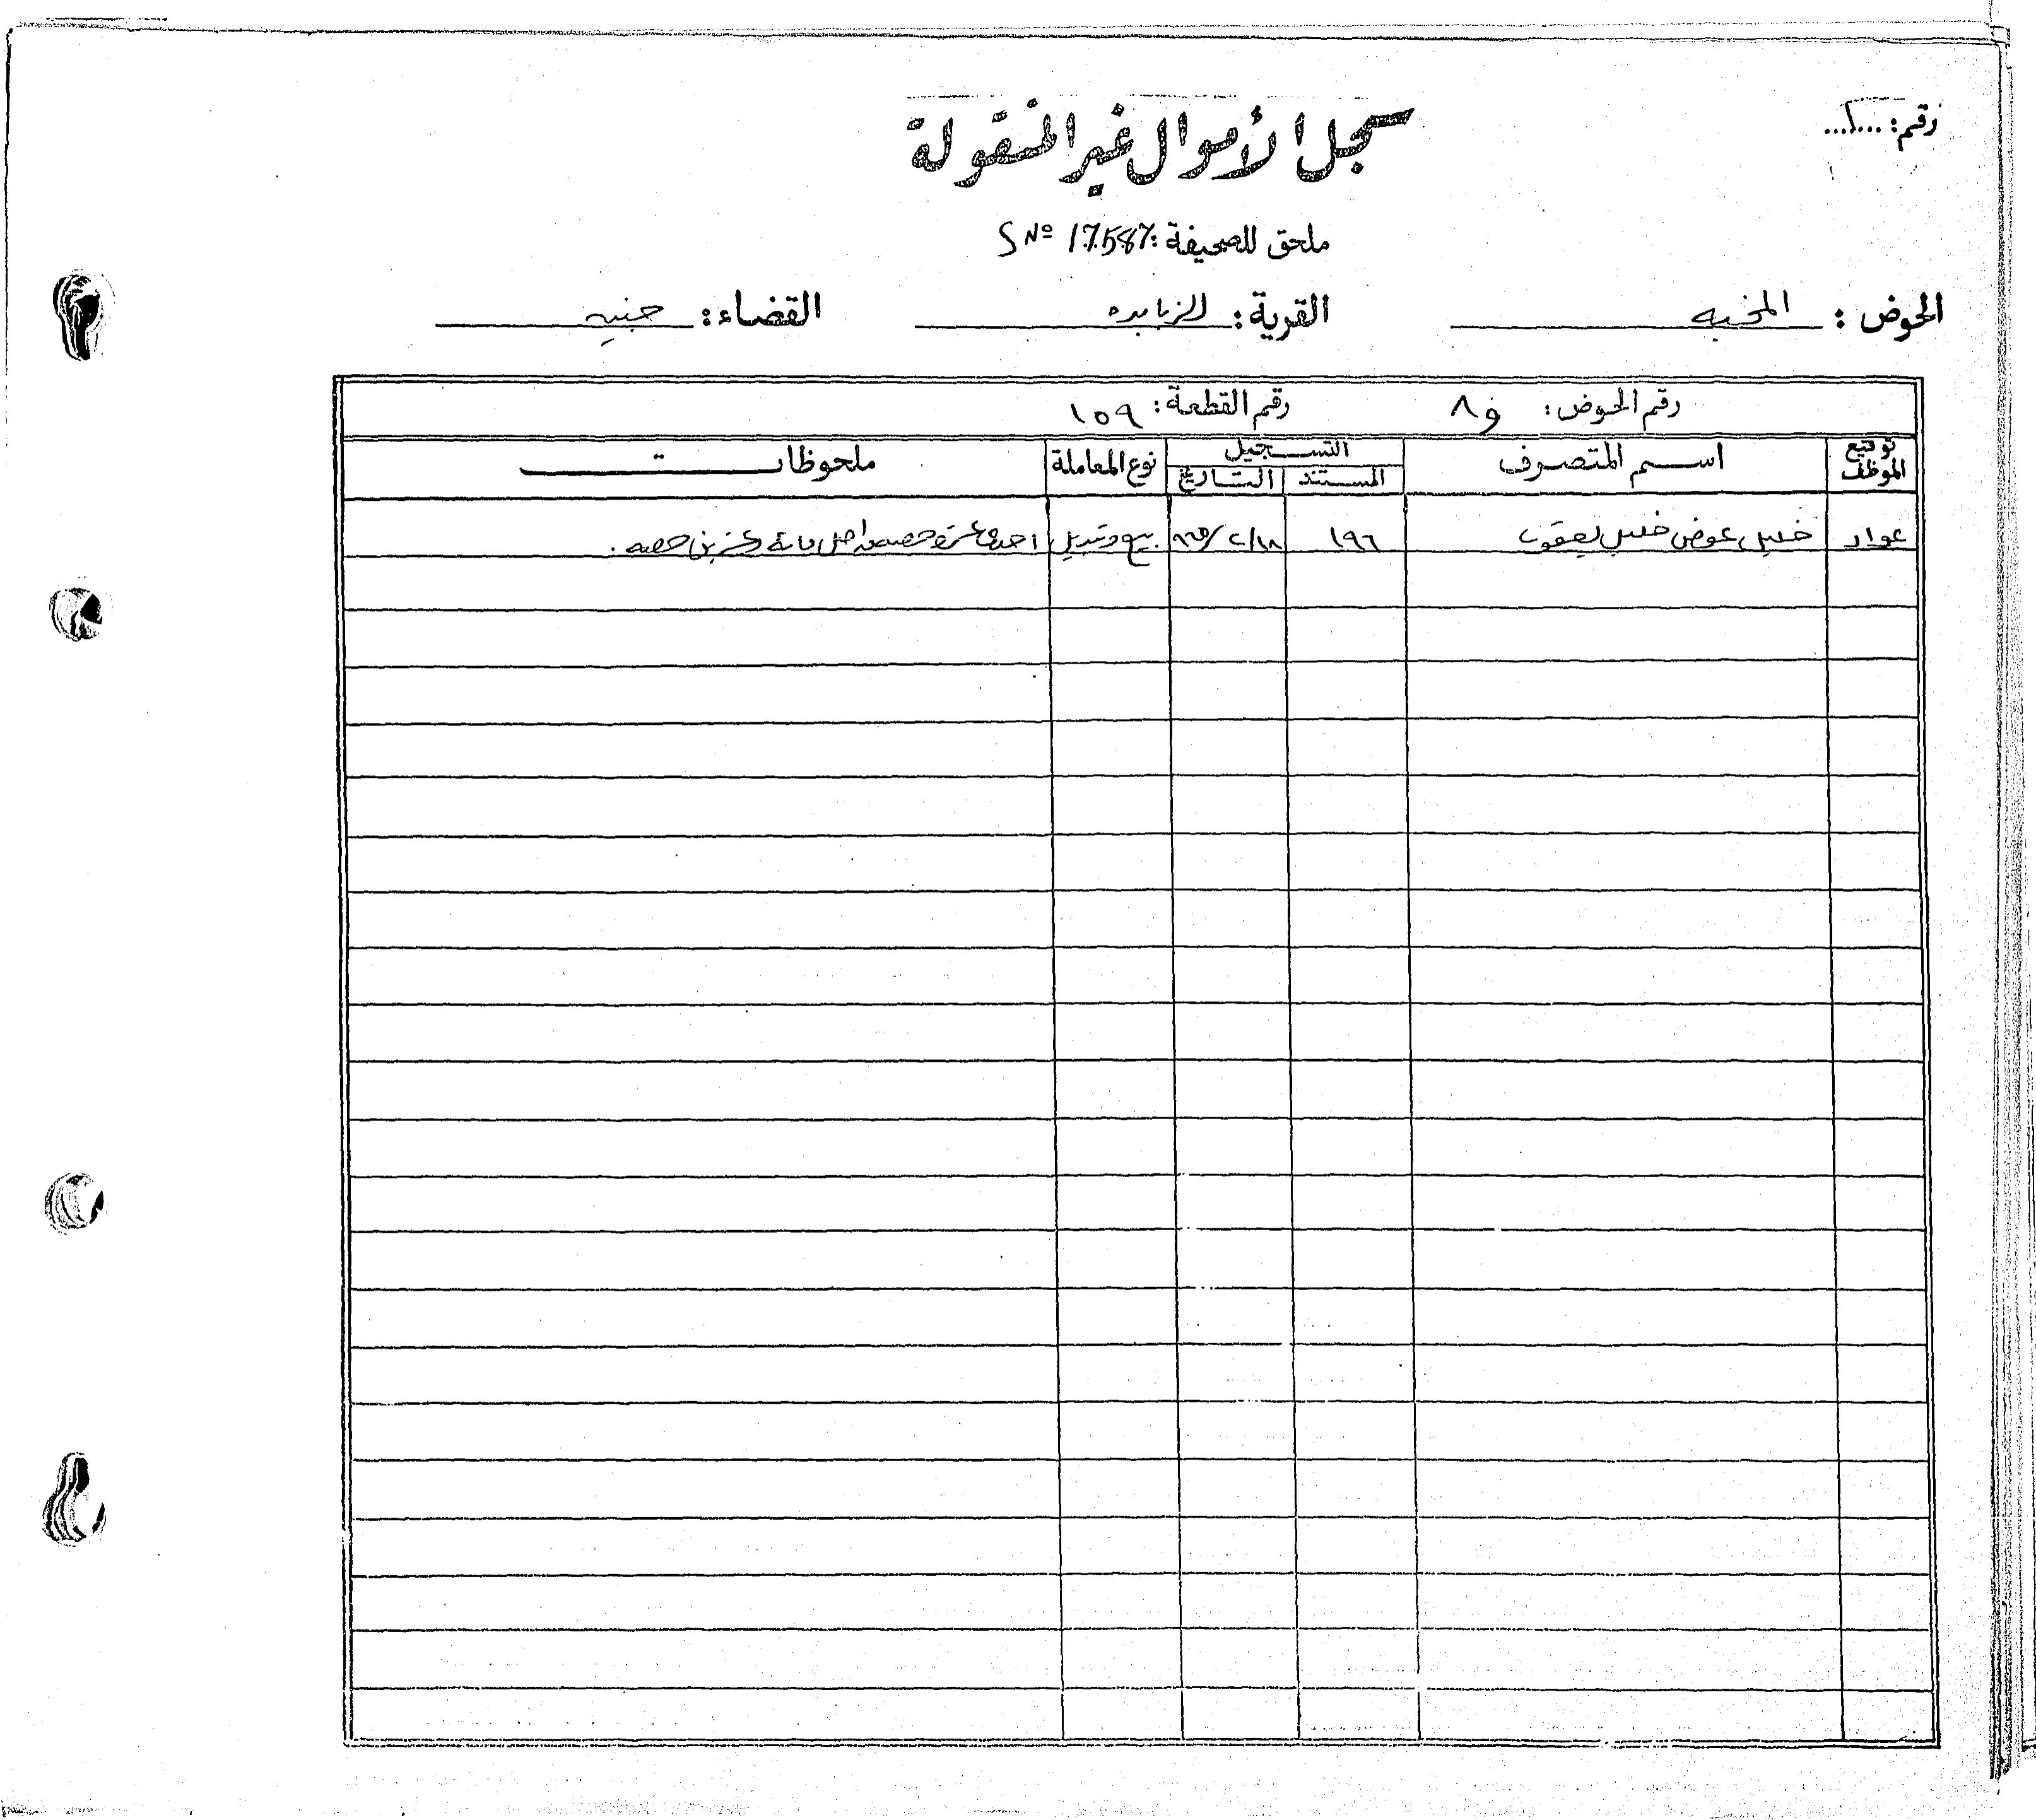 رقم: ...١...
سجل الأموال غير المنقولة
ملحق للصحيفة: S Nº 17587
الحوض: المخبه القرية: الزبابده القضاء: جنين
رقم الحوض: ٨ و رقم القطعة: ١٥٩
توقيع الموظف اسم المتصرف التسجيل نوع المعاملة ملحوظات
المستند التاريخ
عواد خليل عوض خليل يعقوب ١٩٦ ١٨/٢/٩٦٥ بيع وتبديل احدى عشرة حصه من اصل مائة وعشرين حصه.